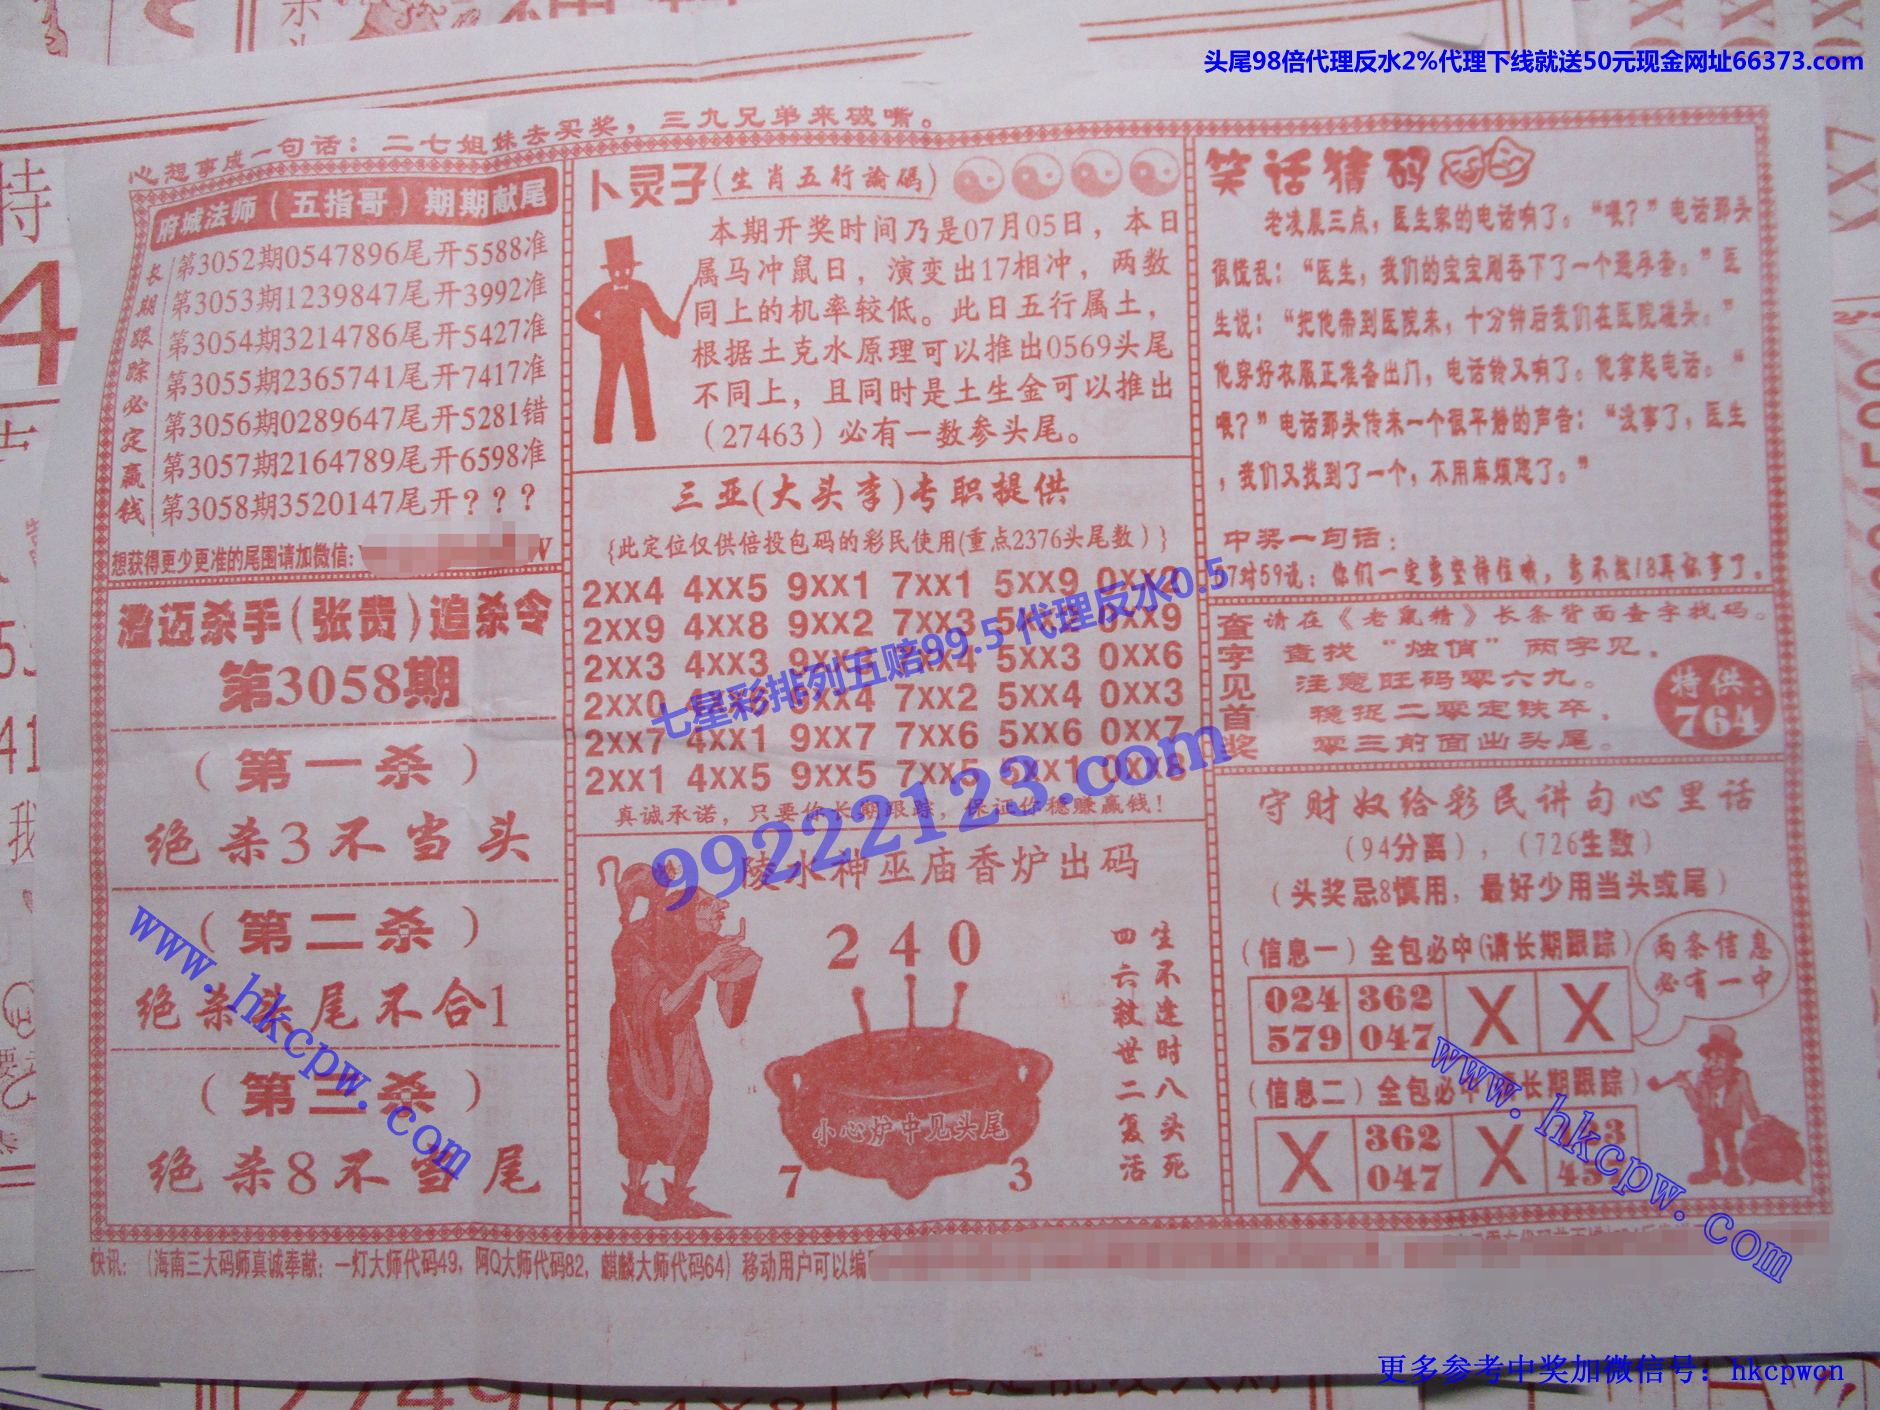 头尾98倍代理反水2%代理下线就送50元现金网址66373.com
心想事成一句话：二七姐妹去买奖，三九兄弟来破嘴。
府城法师（五指哥）期期献尾
长期跟踪必定赢钱
第3052期0547896尾开5588准
第3053期1239847尾开3992准
第3054期3214786尾开5427准
第3055期2365741尾开7417准
第3056期0289647尾开5281错
第3057期2164789尾开6598准
第3058期3520147尾开？？？
想获得更少更准的尾围请加微信:
澄迈杀手(张贵)追杀令
第3058期
（第一杀）
绝杀3不当头
（第二杀）
绝杀头尾不合1
（第三杀）
绝杀8不当尾
卜灵子(生肖五行論碼)
本期开奖时间乃是07月05日，本日
属马冲鼠日，演变出17相冲，两数
同上的机率较低。此日五行属土，
根据土克水原理可以推出0569头尾
不同上，且同时是土生金可以推出
（27463）必有一数参头尾。
三亚(大头李)专职提供
{此定位仅供倍投包码的彩民使用(重点2376头尾数）}
2xx4 4xx5 9xx1 7xx1 5xx9 0xx2
2xx9 4xx8 9xx2 7xx3 0xx9
2xx3 4xx3 5xx3 0xx6
2xx0 7xx2 5xx4 0xx3
2xx7 4xx1 9xx7 7xx6 5xx6 0xx7
2xx1 4xx5 9xx5 7xx5 5xx1 0xx8
真诚承诺，只要你长期跟踪，保证你稳赚赢钱！
七星彩排列五赔99.5 代理反水0.5
99222123.com
陵水神巫庙香炉出码
240
小心炉中见头尾
7 3
生不逢时八头死
四六救世二复活
笑话猜码
老凌晨三点，医生家的电话响了。“喂？”电话那头
很慌乱：“医生，我们的宝宝刚吞下了一个避孕套。”医
生说：“把他带到医院来，十分钟后我们在医院碰头。”
他穿好衣服正准备出门，电话铃又响了。他拿起电话。“
喂？”电话那头传来一个很平静的声音：“没事了，医生
，我们又找到了一个，不用麻烦您了。”
中奖一句话：
对59说：你们一定要坚持住哦，要不被18再坏事了。
查字见首奖
请在《老鼠精》长条背面查字找码。
查找“烛俏”两字见，
注意旺码零六九。
稳捉二零定铁卒，
零三前面出头尾。
特供：
764
守财奴给彩民讲句心里话
（94分离），（726生数）
（头奖忌8慎用，最好少用当头或尾）
（信息一）全包必中(请长期跟踪)
024 362 X X
579 047
两条信息
必有一中
（信息二）全包必中 长期跟踪)
X 362 X
047
快讯：（海南三大码师真诚奉献：一灯大师代码49，阿Q大师代码82，麒麟大师代码64）移动用户可以编
www.hkcpw.com
www.hkcpw.com
更多参考中奖加微信号：hkcpwcn